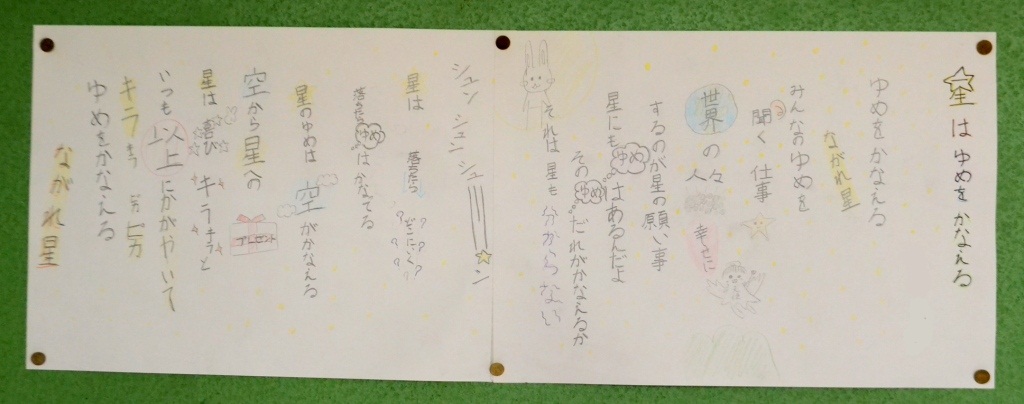 星はゆめをかなえる
ゆめをかなえる
ながれ星
みんなのゆめを
聞く仕事
世界の人々
幸せに
するのが星の願い事
星にもゆめはあるんだよ
そのゆめはだれがかなえるか
それは星も分からない
シュン シュン シューン
星は 落ちたら どこにいく????
落ちたらゆめはかなえる
星のゆめは空がかなえる
空から星へのプレゼント
星は喜び キラキラと
いつも以上にかがやいて
キラキラ
ゆめをかなえる
ながれ星